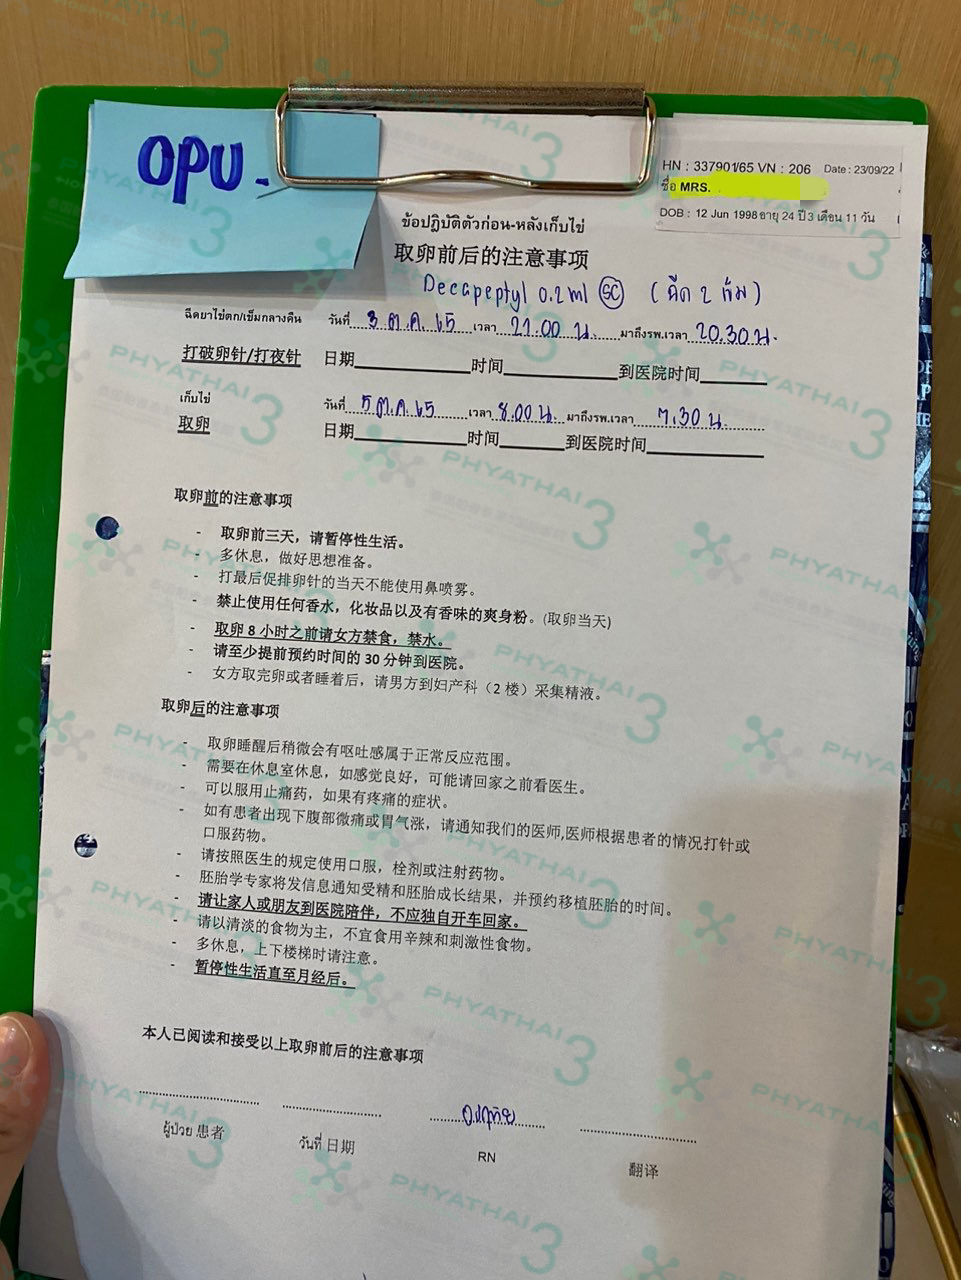 OPU -
HN : 337901/65 VN : 206 Date : 23/09/22
ชื่อ MRS.
DOB : 12 Jun 1998 อายุ 24 ปี 3 เดือน 11 วัน
ข้อปฏิบัติตัวก่อน-หลังเก็บไข่
取卵前后的注意事项
Decapeptyl 0.2 ml SC (ฉีด 2 เข็ม)
ฉีดยาไข่ตก/เข็มกลางคืน วันที่ 3 ต.ค. 65 เวลา 21.00 น. มาถึงรพ.เวลา 20.30 น.
打破卵针/打夜针 日期 时间 到医院时间
เก็บไข่ วันที่ 5 ต.ค. 65 เวลา 8.00 น. มาถึงรพ.เวลา 7.30 น.
取卵 日期 时间 到医院时间
取卵前的注意事项
- 取卵前三天，请暂停性生活。
- 多休息，做好思想准备。
- 打最后促排卵针的当天不能使用鼻喷雾。
- 禁止使用任何香水，化妆品以及有香味的爽身粉。(取卵当天)
- 取卵 8 小时之前请女方禁食，禁水。
- 请至少提前预约时间的 30 分钟到医院。
- 女方取完卵或者睡着后，请男方到妇产科（2 楼）采集精液。
取卵后的注意事项
- 取卵睡醒后稍微会有呕吐感属于正常反应范围。
- 需要在休息室休息，如感觉良好，可能请回家之前看医生。
- 可以服用止痛药，如果有疼痛的症状。
- 如有患者出现下腹部微痛或胃气涨，请通知我们的医师,医师根据患者的情况打针或
口服药物。
- 请按照医生的规定使用口服，栓剂或注射药物。
- 胚胎学专家将发信息通知受精和胚胎成长结果，并预约移植胚胎的时间。
- 请让家人或朋友到医院陪伴，不应独自开车回家。
- 请以清淡的食物为主，不宜食用辛辣和刺激性食物。
- 多休息，上下楼梯时请注意。
- 暂停性生活直至月经后。
本人已阅读和接受以上取卵前后的注意事项
ผู้ป่วย 患者 วันที่ 日期 RN 翻译
PHYATHAI 3